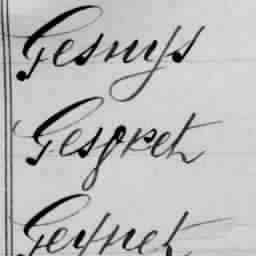 Gesnys
Gesqret
Geynet